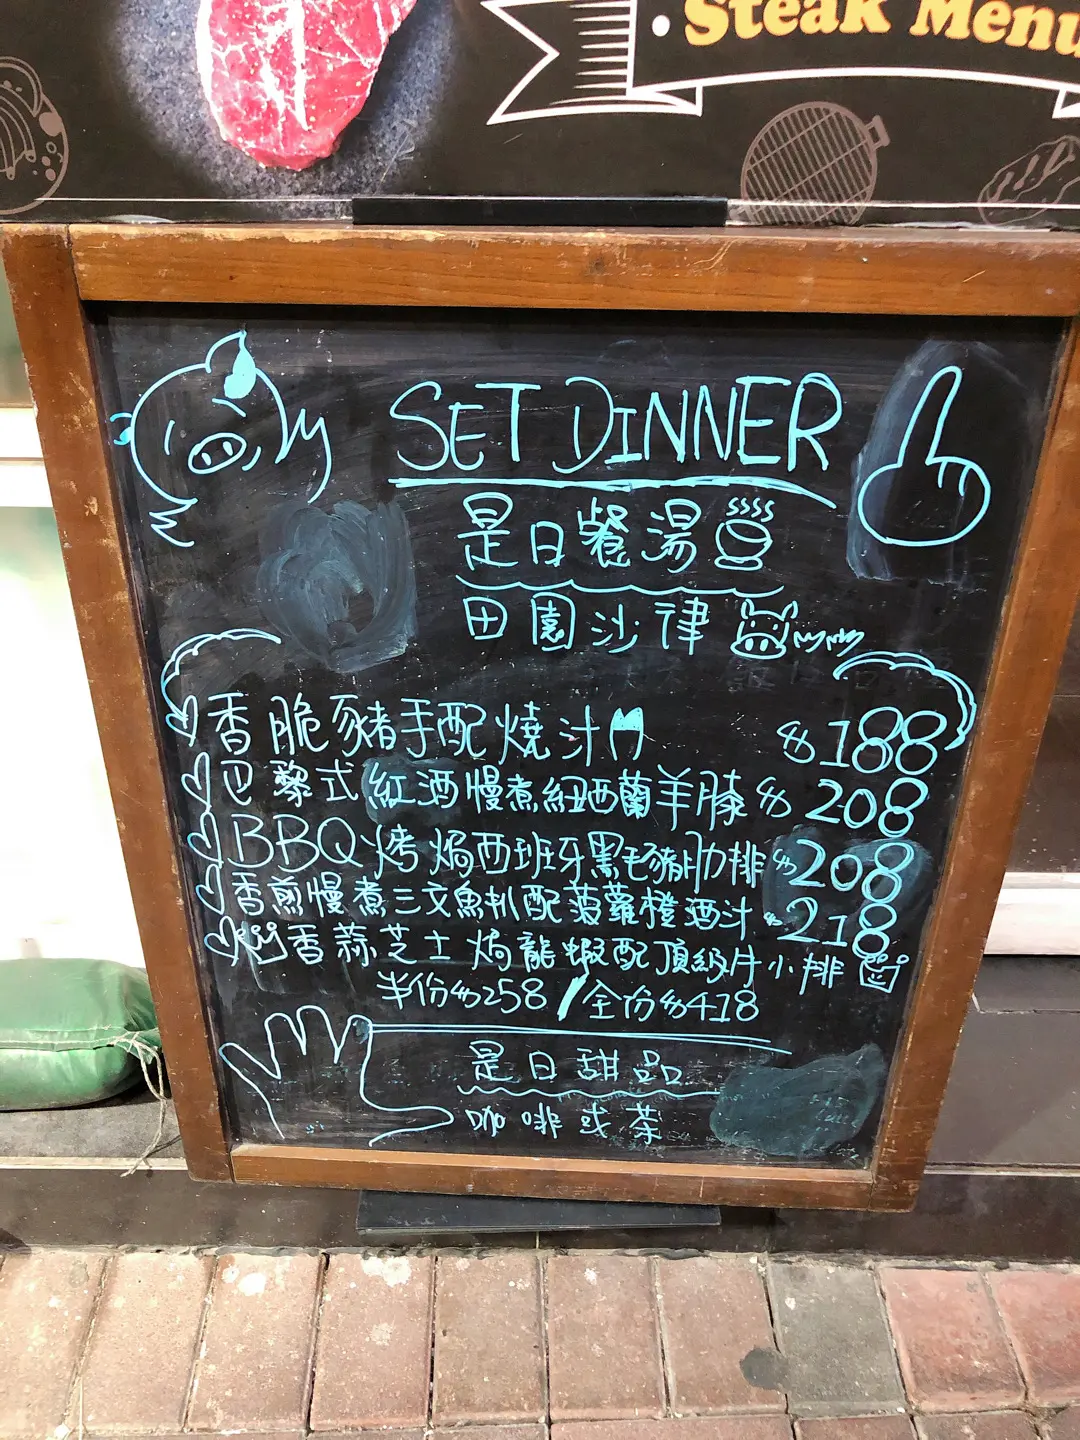 Steak Menu
SET DINNER
是日餐湯
田園沙律
香脆豬手配燒汁 $188
巴黎式紅酒慢煮紐西蘭羊膝 $208
BBQ烤焗西班牙黑毛豬肋排 $208
香煎慢煮三文魚扒配菠蘿橙酒汁 $218
香蒜芝士焗龍蝦配頂級片小排
半份$258 / 全份$418
是日甜品
咖啡或茶